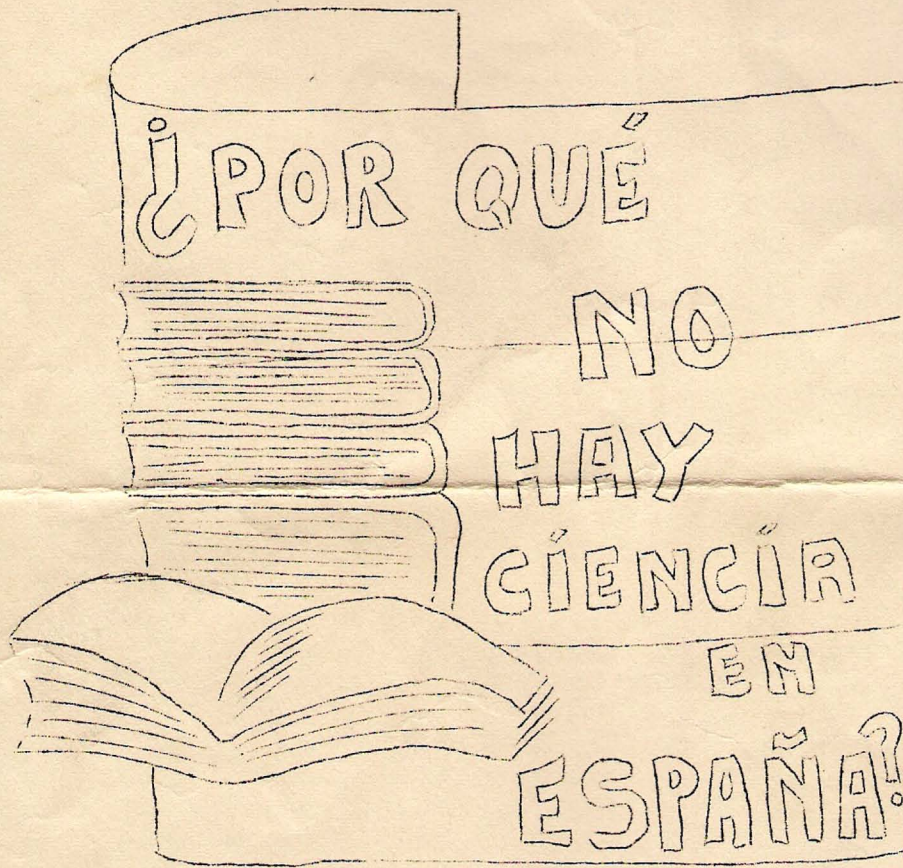 ¿POR QUÉ
NO
HAY
CÍENCÍA
EN
ESPAÑA?